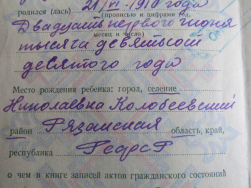 родился (лась) 21/VI-1910 года
(прописью и цифрами год,
Двадцать первого июня
месяц и число)
тысяча девятьсот
десятого года
Место рождения ребенка: город, селение
Николаевка
район Рязанская область, край,
республика РСФСР
о чем в книге записей актов гражданского состояний